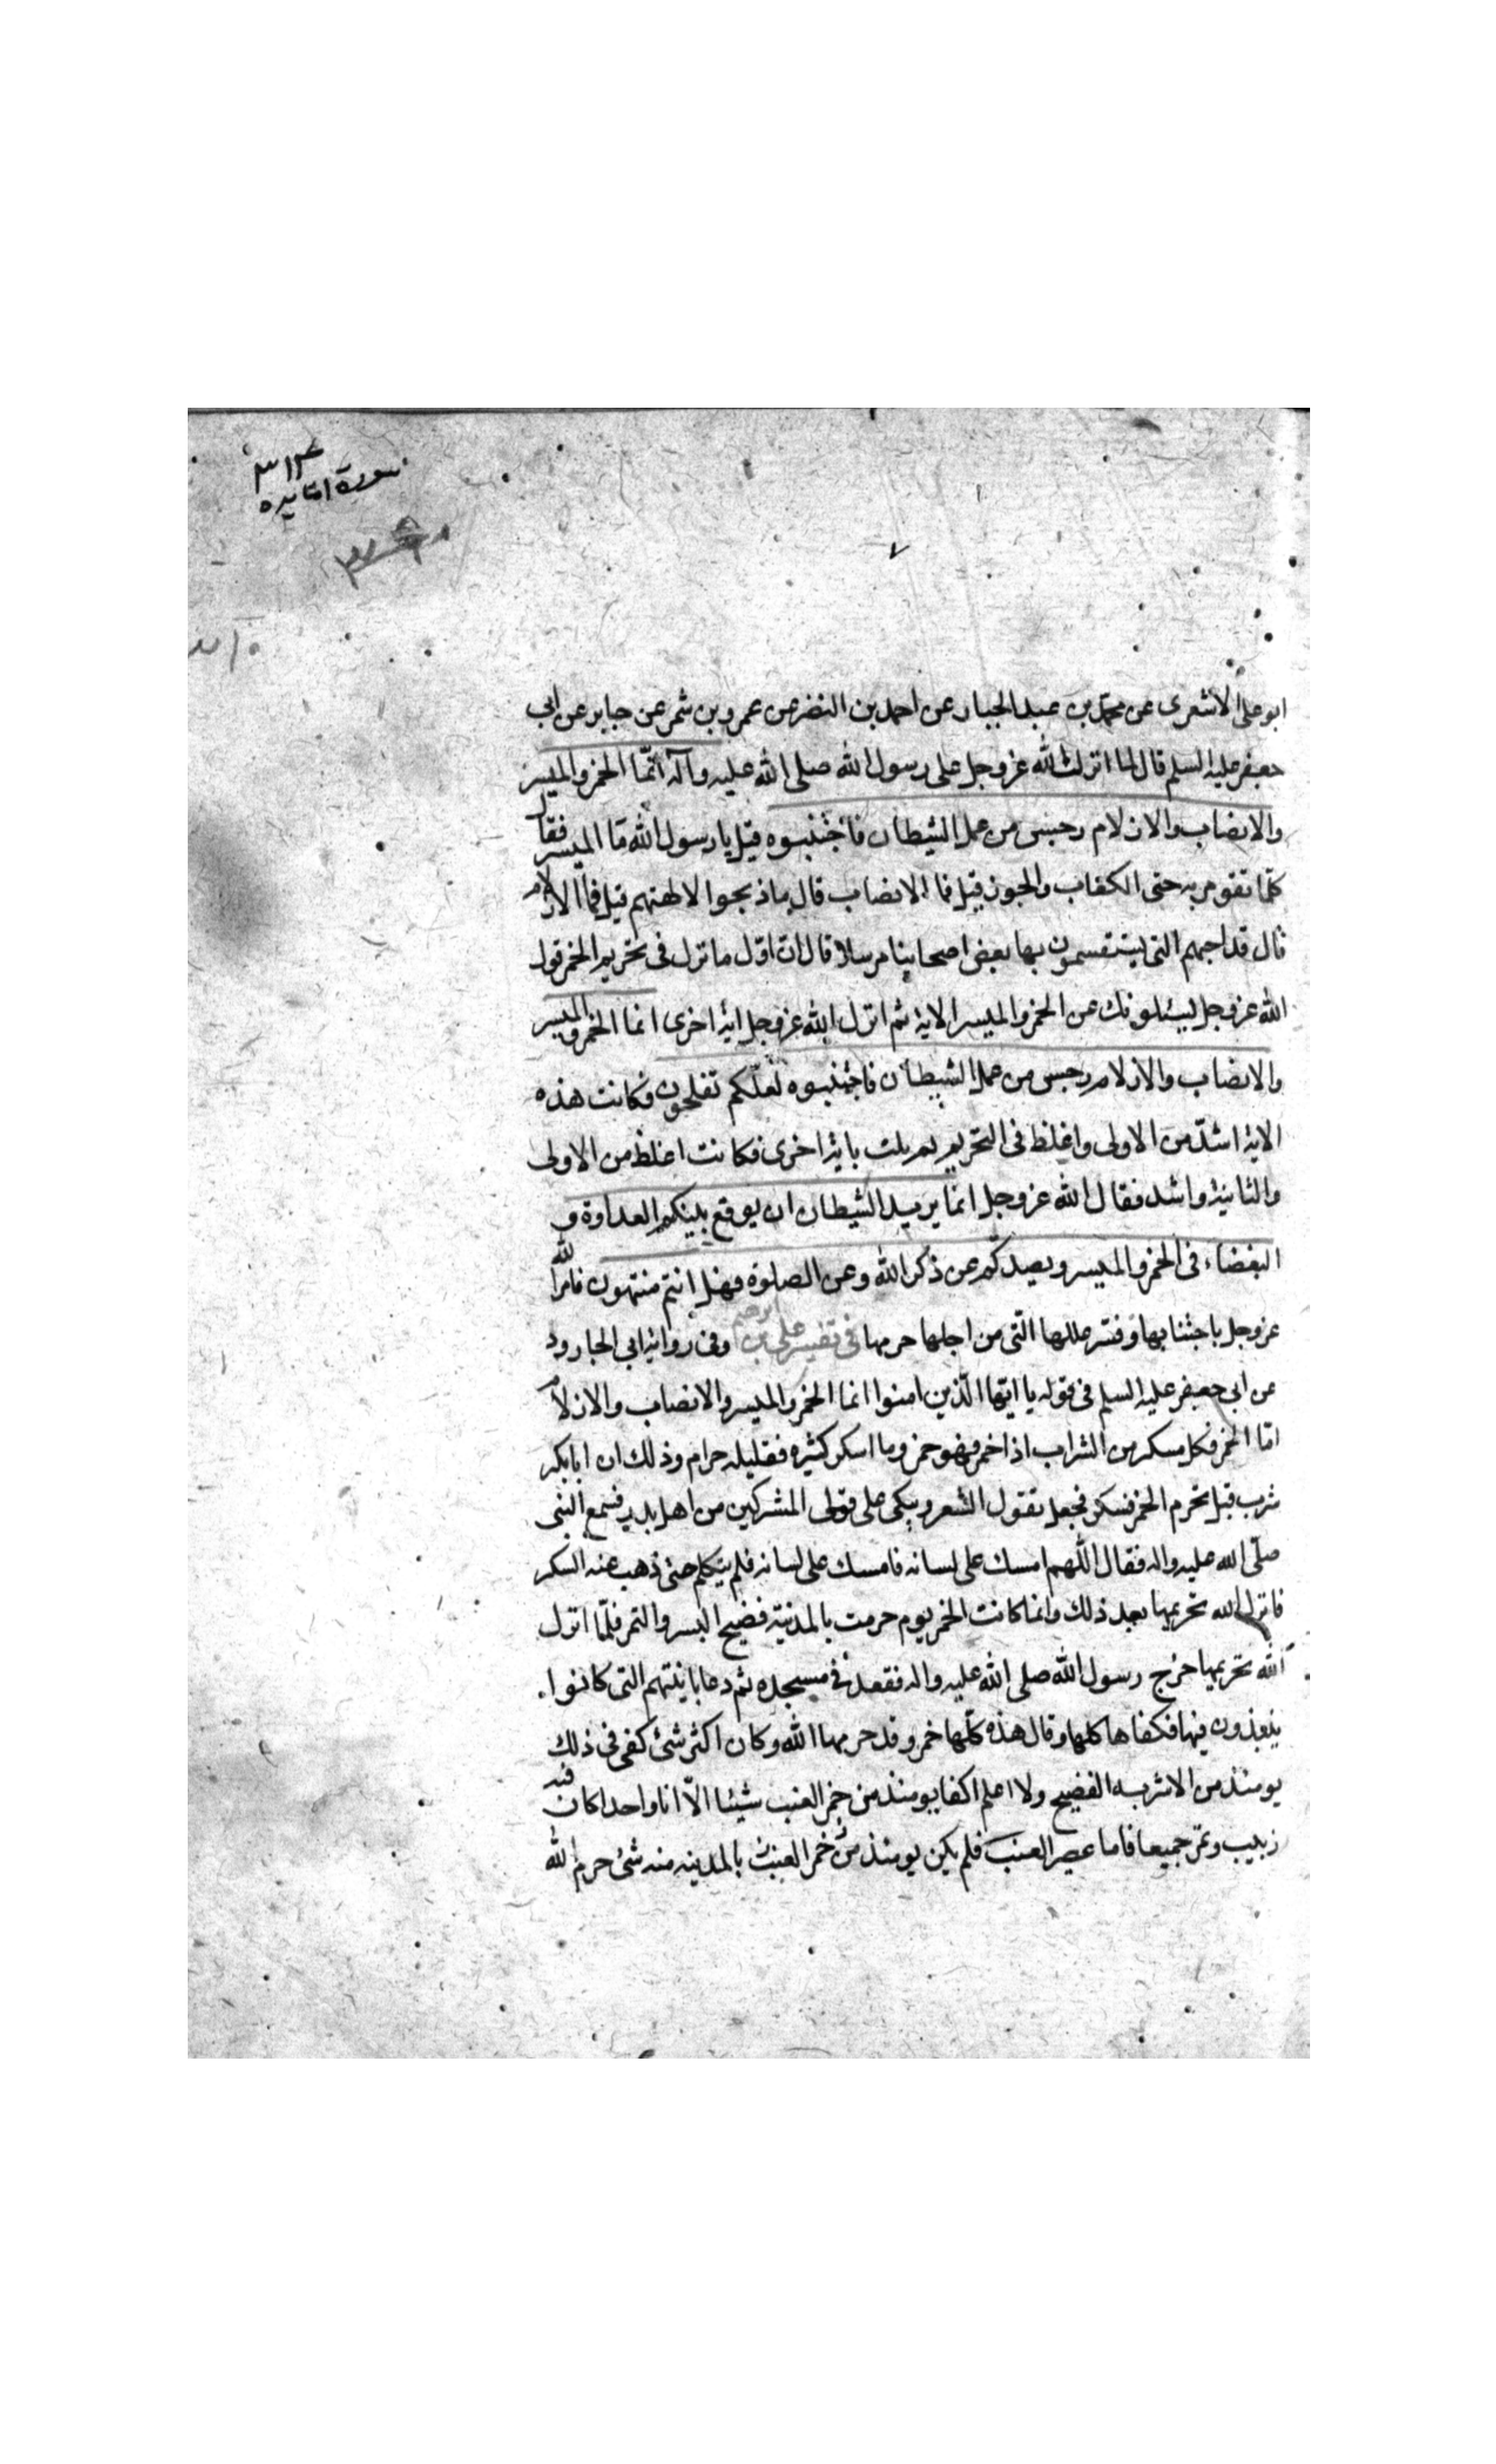 ٣١٣
سورة المايده
ابو على الاشعرى عن محمد بن عبد الجبار عن احمد بن النضر عن عمرو بن شمر عن جابر عن ابى
جعفر عليه السلم قال لما انزل الله عز وجل على رسول الله صلى الله عليه وآله انّما الخمر والميسر
والانصاب والازلام رجس من عمل الشيطان فاجتنبوه قيل يا رسول الله ما الميسر فقال
كلّما تقومر به حتى الكعاب والجوز قيل فما الانصاب قال ما ذبحوا لالهتهم قيل فما الازلام
قال قداحهم التى يستقسمون بها بعض اصحابنا مرسلا قال انّ اوّل ما نزل فى تحريم الخمر قول
الله عز وجل يسئلونك عن الخمر والميسر الاية ثم انزل الله عز وجل اية اخرى انما الخمر والميسر
والانصاب والازلام رجس من عمل الشيطان فاجتنبوه لعلّكم تفلحون فكانت هذه
الاية اشدّ من الاولى واغلظ فى التحريم ثم ثلث باية اخرى فكانت اغلظ من الاولى
والثانية واشد فقال الله عز وجل انما يريد الشيطان ان يوقع بينكم العداوة و
البغضاء فى الخمر والميسر ويصدكم عن ذكر الله وعن الصلوة فهل انتم منتهون فامر الله
عز وجل باجتنابها وفسّر عللها الّتى من اجلها حرمها فى تفسير على بن ابرهيم وفى رواية ابى الجارود
عن ابى جعفر عليه السلم فى قوله يا ايّها الّذين امنوا انما الخمر والميسر والانصاب والازلام
امّا الخمر فكل مسكر من الشراب اذا اخمر فهو خمر وما اسكر كثيره فقليله حرام وذلك ان ابا بكر
شرب قبل تحرم الخمر فسكر فجعل يقول الشعر ويبكى على قتلى المشركين من اهل بدر فسمع النبى
صلّى الله عليه واله فقال اللهم امسك على لسانه فامسك على لسانه فلم يتكلم حتى ذهب عنه السكر
فانزل الله تحريمها بعد ذلك وانما كانت الخمر يوم حرمت بالمدينة فضيح البسر والتمر فلمّا انزل
الله تحريمها خرج رسول الله صلى الله عليه واله فقعد فى مسجده ثم دعا بانيتهم التى كانوا
ينبذون فيها فكفاها كلها وقال هذه كلّها خمر وقد حرمها الله وكان اكثر شئ كفى فى ذلك
يومئذ من الاشربه الفضيح ولا اعلم اكفا يومئذ من خمر العنب شيئا الّا انا واحدا كان فيه
زبيب وتمر جميعا فاما عصير العنب فلم يكن يومئذ من خمر العنب بالمدينه منه شئ حرم الله